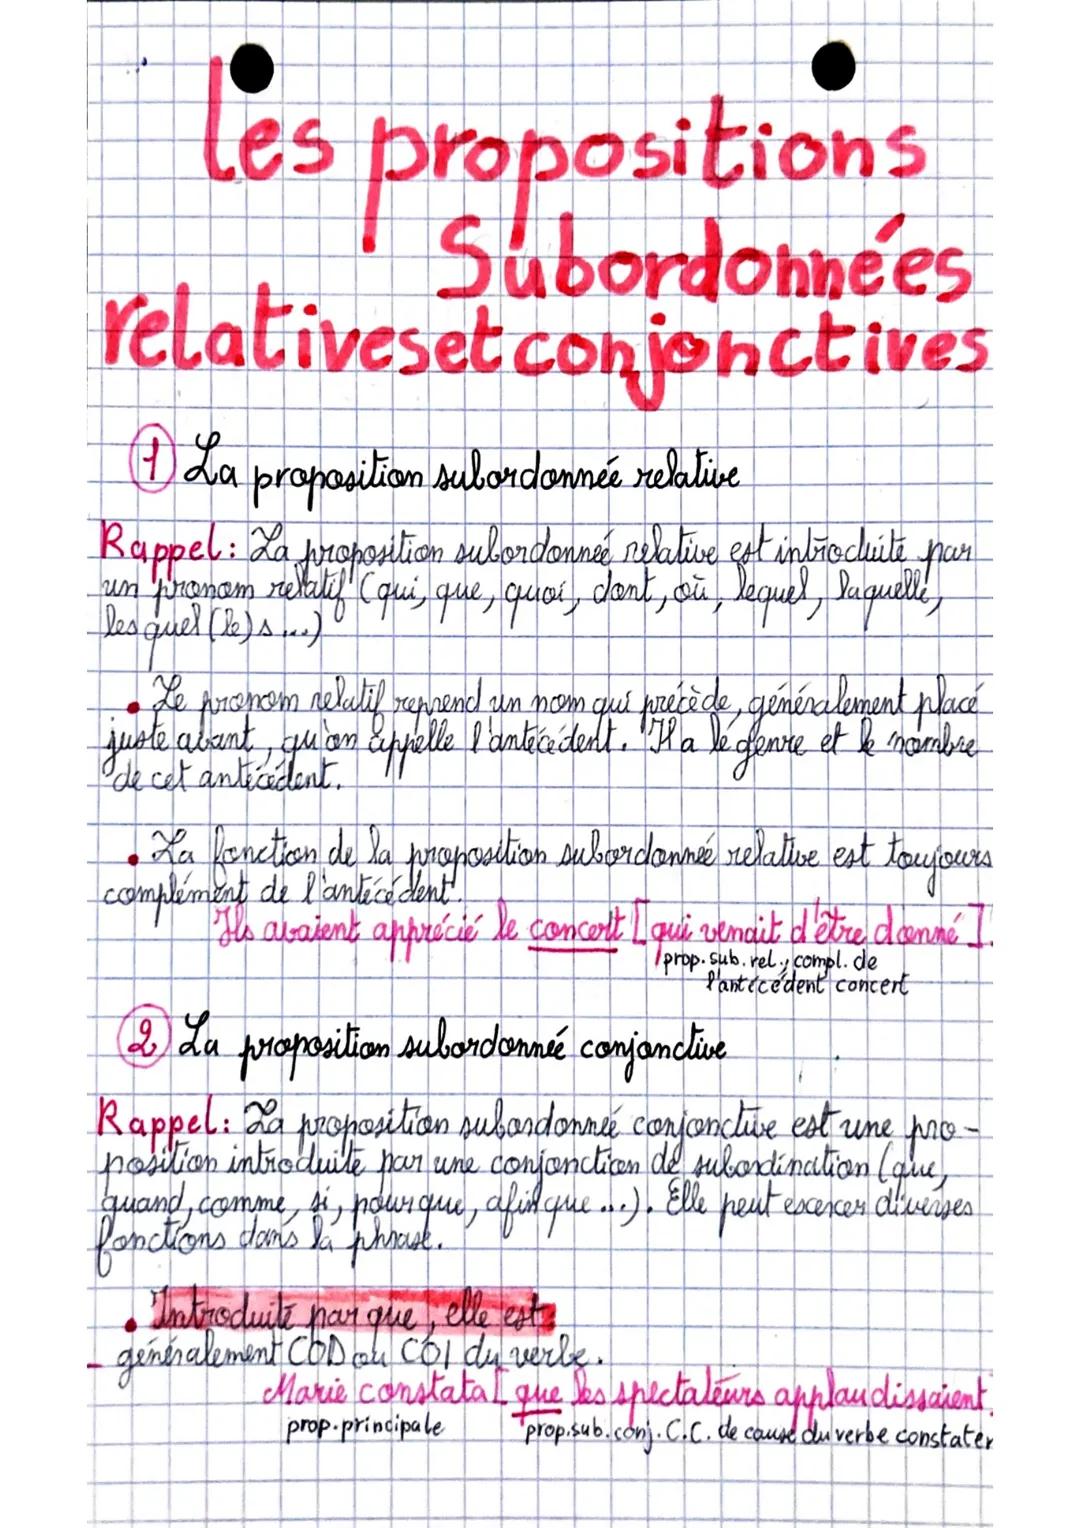 Les propositions
Subordonnées
relatives et conjonctives
1 La proposition subordonnée relative
Rappel: La proposition subordonnée relative est introduite par
un pronom relatif (qui, que, quoi, dont, où, lequel, laquelle,
lesquel(le)s...)
• Le pronom relatif reprend un nom qui précède, généralement placé
juste avant, qu'on appelle l'antécédent. Il a le genre et le nombre
de cet antécédent.
• La fonction de la proposition subordonnée relative est toujours
complément de l'antécédent.
Ils avaient apprécié le concert [qui venait d'être donné].
prop. sub. rel., compl. de
l'antécédent concert
2 La proposition subordonnée conjonctive
Rappel: La proposition subordonnée conjonctive est une pro-
position introduite par une conjonction de subordination (que,
quand, comme, si, pour que, afin que ...). Elle peut exercer diverses
fonctions dans la phrase.
• Introduite par que, elle est
généralement COD ou COI du verbe.
Marie constata [que les spectateurs applaudissaient.
prop. principale prop. sub. conj. C.C. de cause du verbe constater